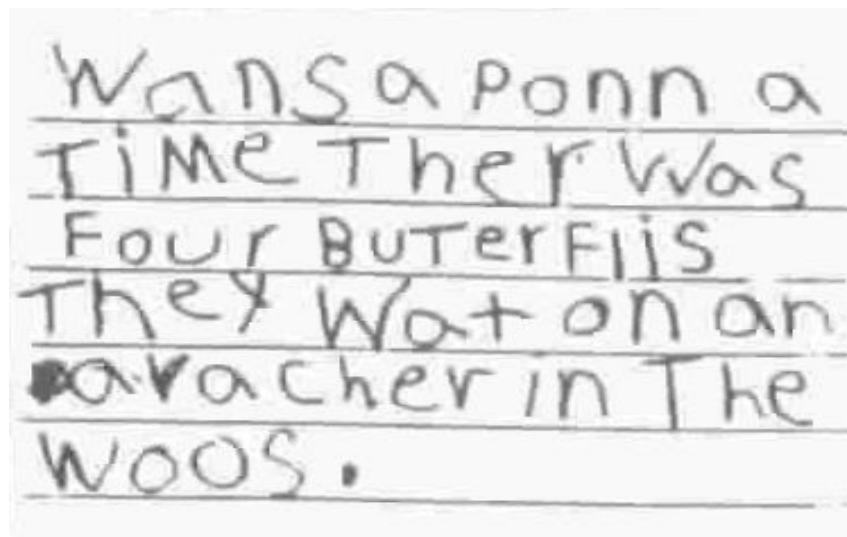 Wansa Ponn a
TiMe Ther Was
Four BuTerFlis
They Wat on an
avacher in The
Woos.